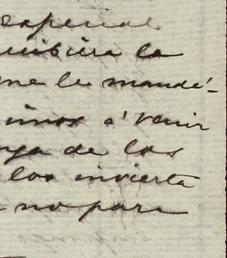 especial
quisiera la
me le mandé-
unos á venir
nga de los
los invierta
no para